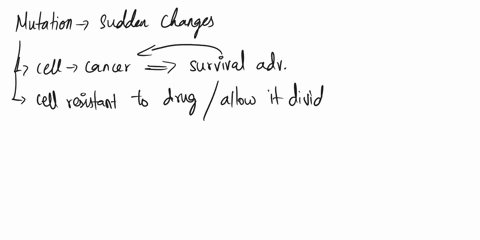 Mutation → Sudden Changes
↳ cell → cancer ⟹ survival adv.
↳ cell resistant to drug / allow it divid